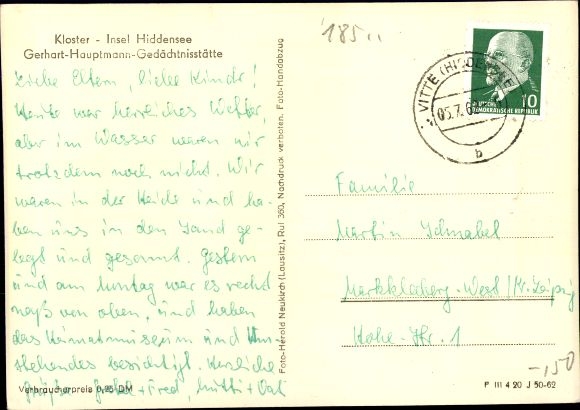 Kloster - Insel Hiddensee
Gerhart-Hauptmann-Gedächtnisstätte
Liebe Eltern, liebe Kinder!
Heute war herrliches Wetter,
aber im Wasser waren wir
trotzdem noch nicht. Wir
waren in der Heide und ha-
ben uns in den Sand ge-
legt und gesonnt. Gestern
und am Montag war es recht
naß von oben, und haben
das Heimatmuseum und
stehendes besichtigt. Herzliche
Grüße + Fred, Mutti + Vati
Verbraucherpreis 0,25 DM
Foto-Herold Neukirch (Lausitz), Ruf 360, Nachdruck verboten. Foto-Handabzug
185
VITTE (HIDDENSEE)
05.7.
b
DEUTSCHE
DEMOKRATISCHE REPUBLIK
10
Familie
Martin Schnabel
Markkleeberg-West/Kr. Leipzig
Hohe-Str. 1
-,150
P III 4 20 J 50-62